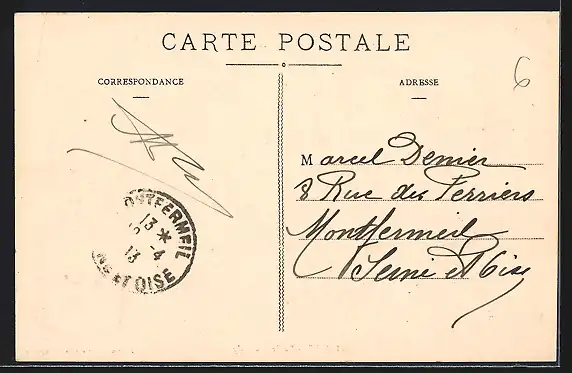 CARTE POSTALE
CORRESPONDANCE
ADRESSE
6
Marcel Denier
8 Rue des Perriers
Montfermeil
Seine et Oise
ONTFERMEIL
13 *
-4
13
ET OISE